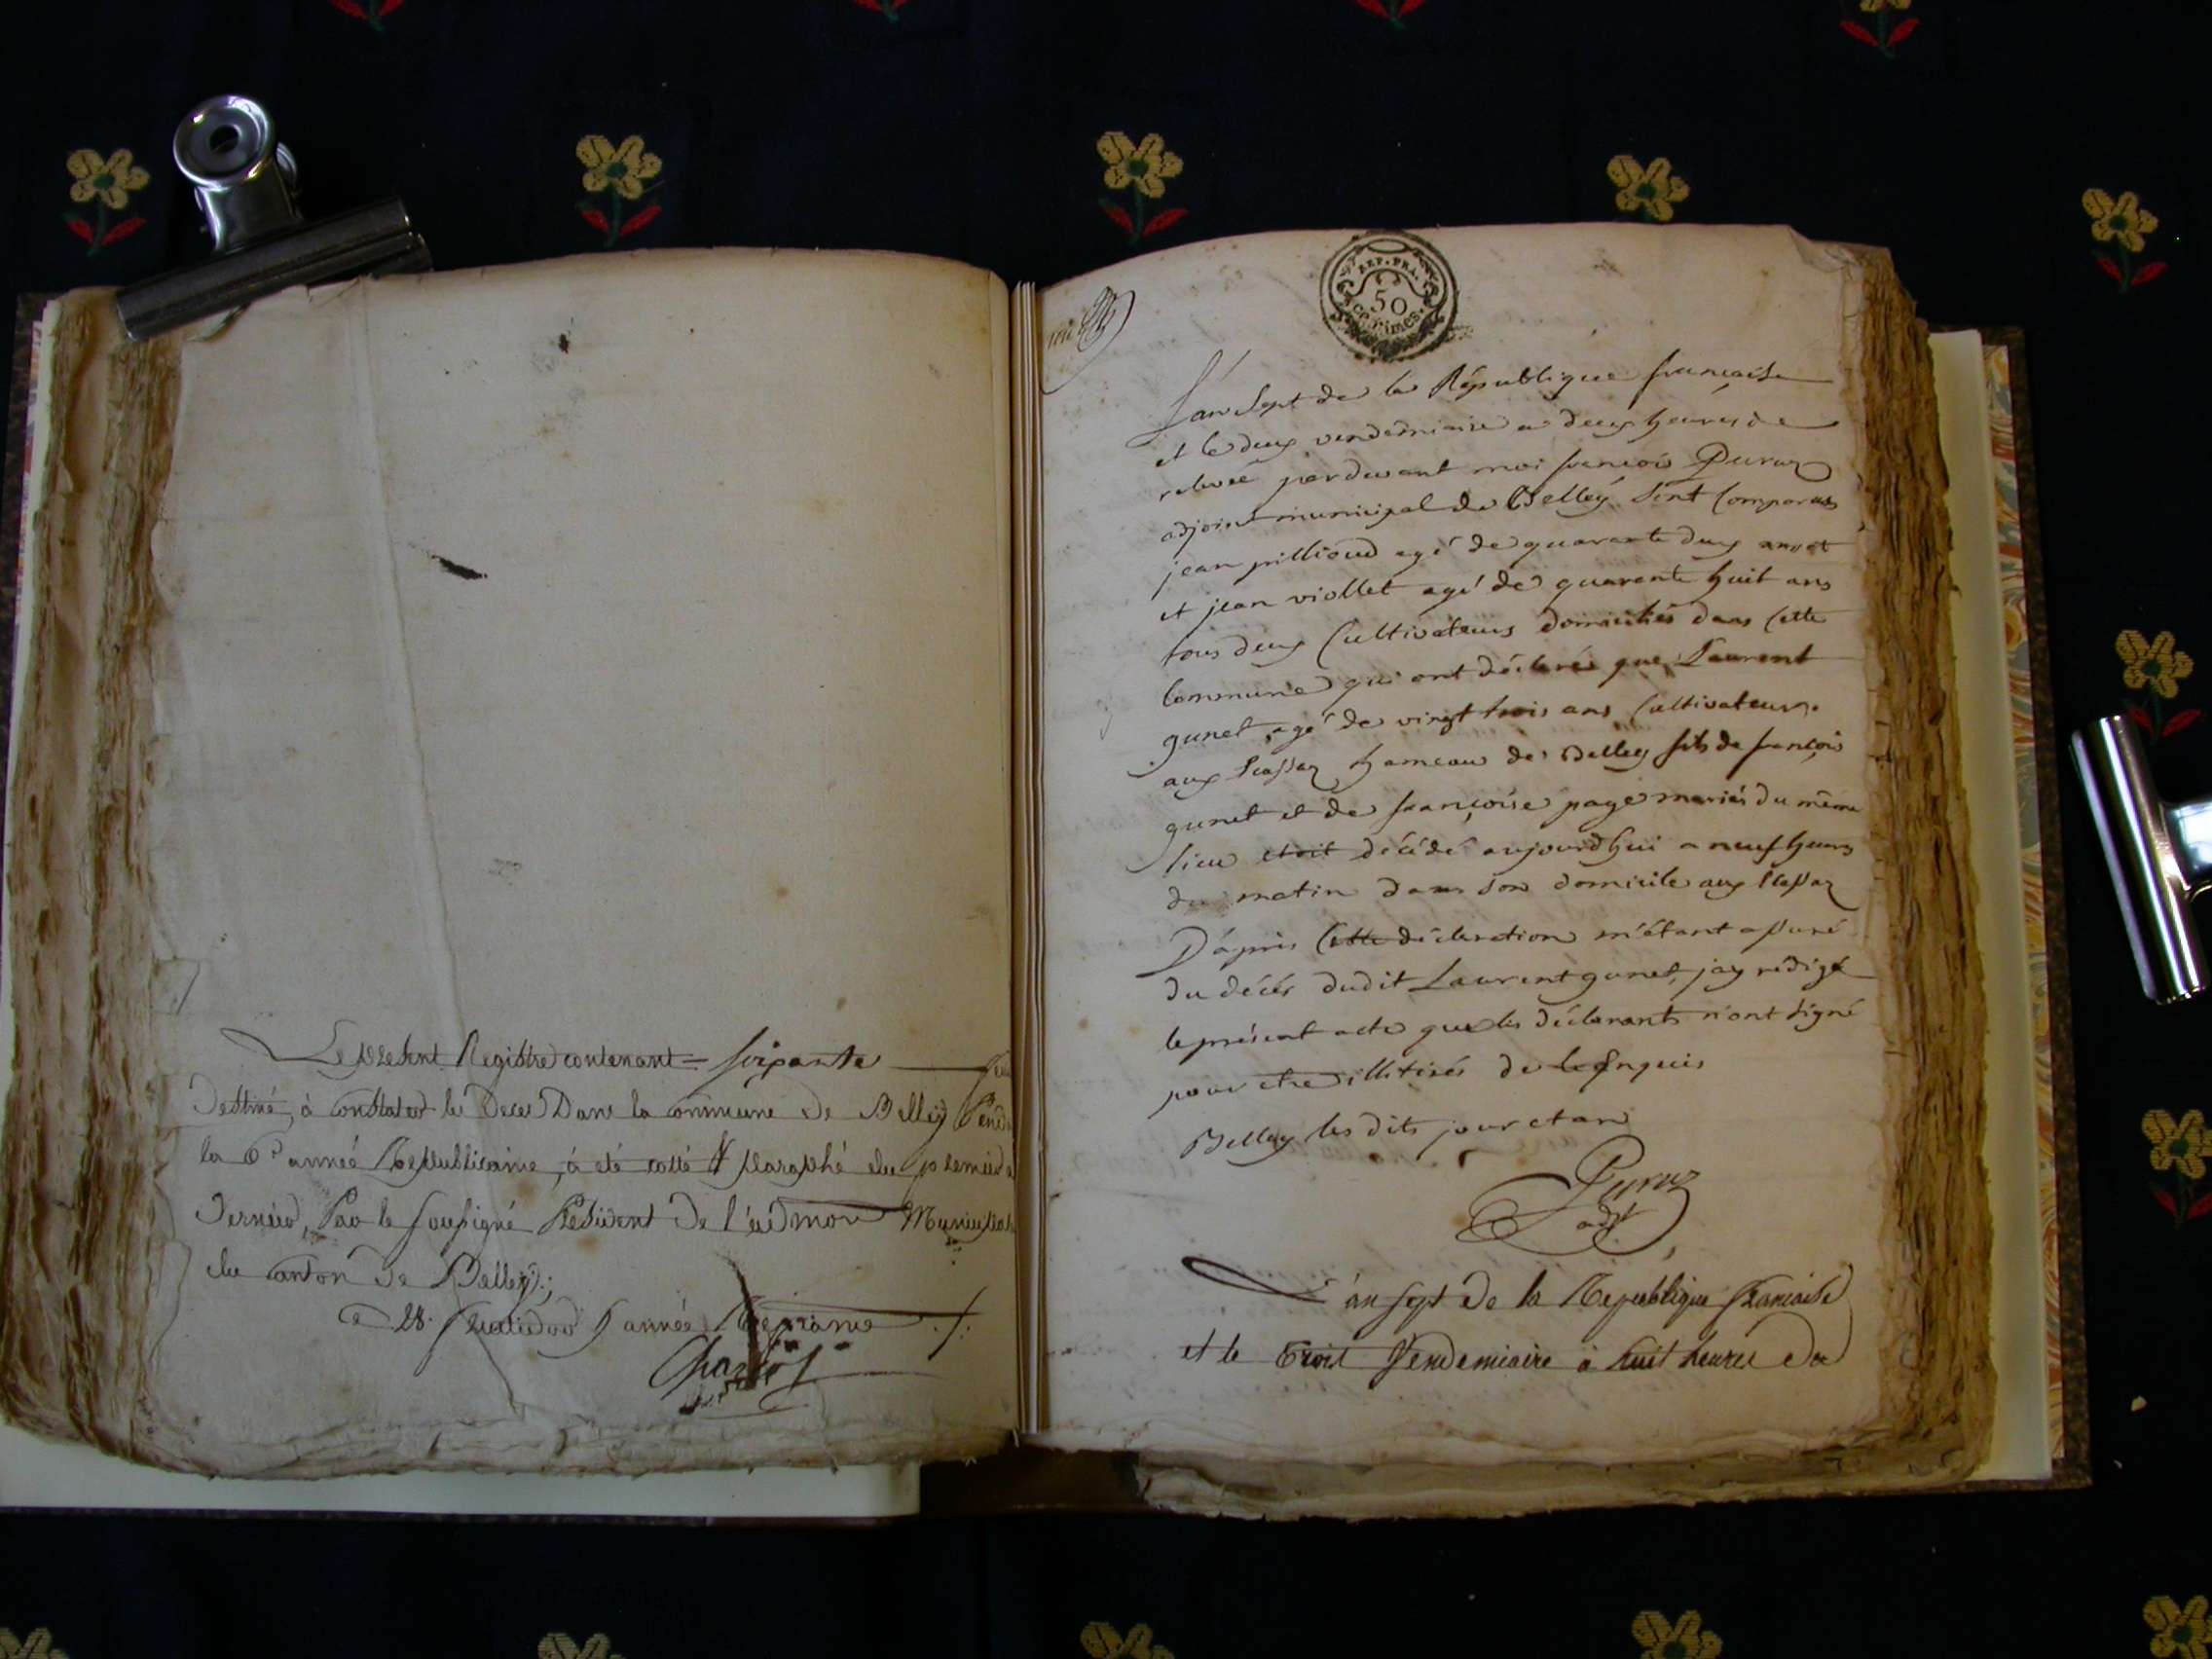 Le present Registre contenant = soixante
destiné, à constater les Deces Dans la commune de Belley
la 6e année Republicaine, à été cotté & paraphé du premier a
dernier, Par le soussigné President de l'adm͞on
du canton de Belley;
28. année
REP. FRA.
50
centimes.
L'an sept de la République francaise
et le deux vendemiaire a deux heures de
relevée pardevant moi francois Puraz
adjoint municipal de Belley sont comparus
jean pillioud agé de quarante deux ans et
et jean viollet agé de quarente huit ans
tous deux cultivateurs domiciliés dans cette
commune qui ont déclarés que Laurent
gunet, agé de vingt trois ans cultivateur
aux hameau de Belley fils de françois
gunet et de françoise page mariés du même
lieu etoit décédé aujourdhui a neuf heures
du matin dans son domicile aux
D'aprés cette déclaration m'étant assuré
du décés dudit Laurent gunet, jay rédigé
le présent acte que les déclarants n'ont signé
pour etre illitirés de ce enquis
Belley les dits jour et an
Puraz
adjt
L'an sept de la Republique francaise
et le trois Vendemiaire à huit heures du